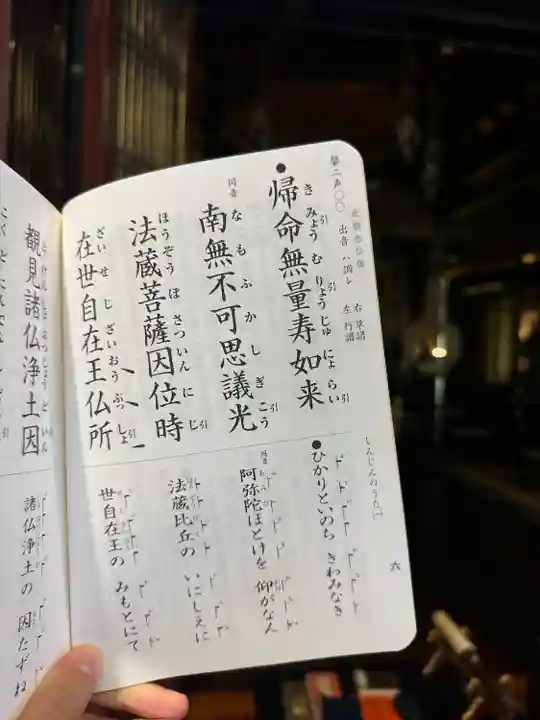 正信念仏偈
右 草譜
左 行譜
出音ハ調レ
磬二声〇〇
●帰命無量寿如来
き みょう む りょう じゅ にょ らい
引 引 引
同音
南無不可思議光
な も ふ か し ぎ こう
引
法蔵菩薩因位時
ほう ぞう ぼ さつ いん に じ
引
在世自在王仏所
ざい せ じ ざい おう ぶっ しょ
引
覩見諸仏浄土因
と けん しょ ぶつ じょう ど いん
引
しんじんのうた(一)
●ひかりといのち きわみなき
同音
阿弥陀ほとけを 仰がなん
法蔵比丘の いにしえに
世自在王の みもとにて
諸仏浄土の 因たずね
六